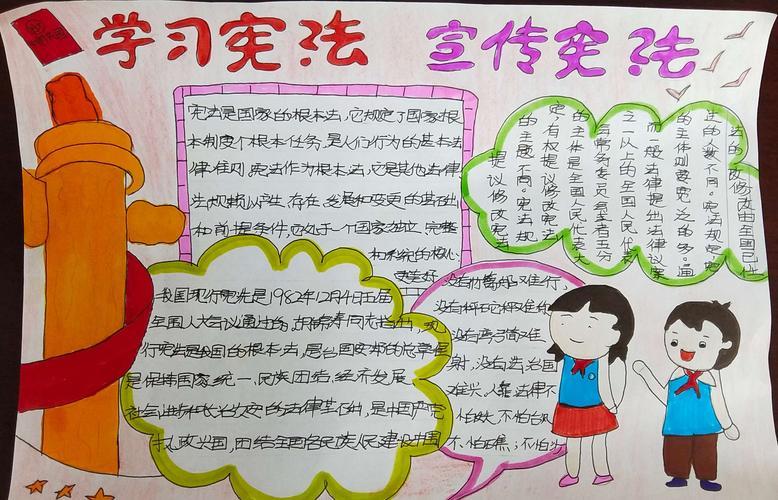 学习宪法 宣传宪法
宪法是国家的根本法，它规定了国家根
本制度个根本任务，是人们行为的基本法
律准则。宪法作为根本法，它是其他法律
法规赖以产生、存在、发展和变更的基础
和前提条件，它处于一个国家独立、完整
和系统的核心
我国现行宪法是1982年12月4日五届
全国人大会议通过的，胡锦涛同志指出，现
行宪法是我国的根本法，是治国安邦的总章程
是保持国家统一、民族团结、经济发展
社会进步和长治久安的法律基础，是中国共产党
执政兴国，团结全国各民族人民建设中国
没有
没有秤砣秤难
没有弯弓箭难
射，没有法治国
难兴，人靠法律不
怕歧，不怕
不，怕焦；不怕
法的修改由全国
法的人数不同。宪法规定宪
的主体则要宽泛的多。通
而一般法律提出法律议案
之一以上的全国人民代表
会常务委员会或者五分
的主体是全国人民代表大
定，有权提议修改宪法
的主题不同。宪法规
提议修改宪法